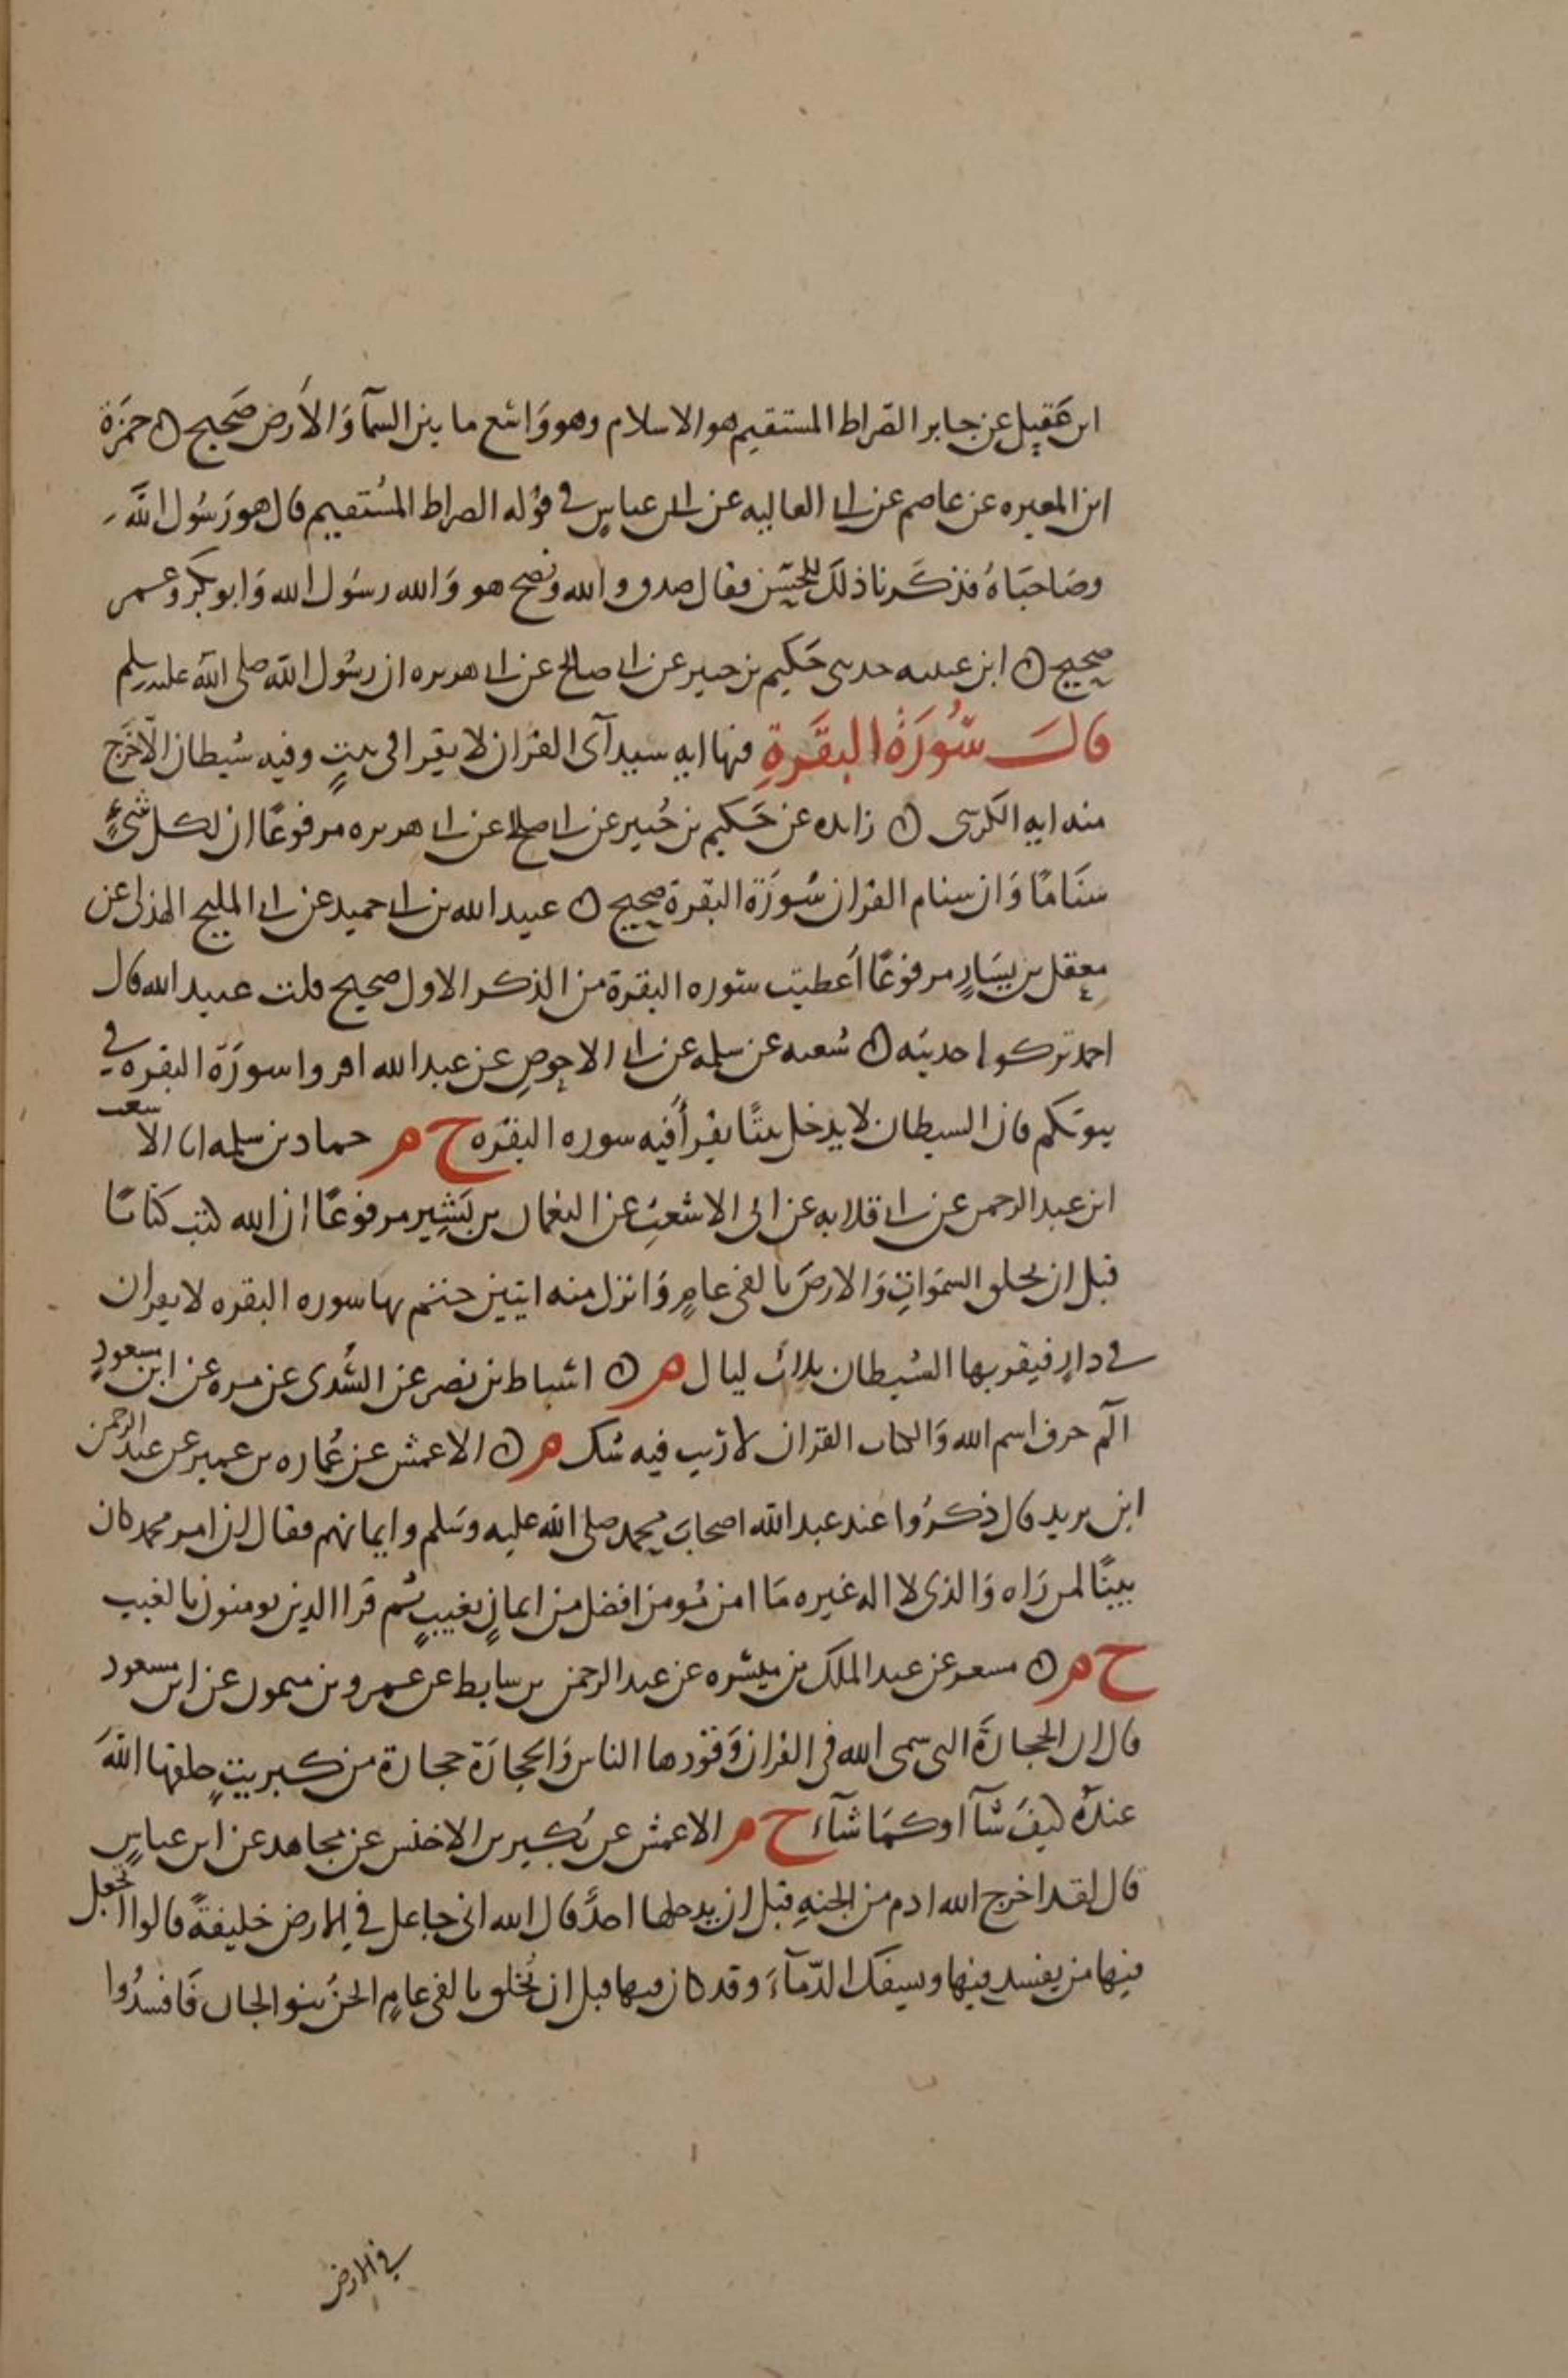 ابن عَقِيل عن جابر الصّراط المستقيم هو الاسلام وهو وَاسَع ما بين السمآ وَالأرض صَحيح ه حمزَة
ابن المغيره عن عاصم عن ابى العاليه عن ابن عباسٍ في قوْله الصراط المُستقيم قال هو رَسُول الله
وصَاحبَاهُ فذكَرنا ذلكَ للحَسَن فقال صدق والله ونصح هو وَالله رسوُل الله وَابو بكر وعمر
صحيح ه ابن عيينه حدثنى حَكيم بن جبير عن ابى صالح عن ابى هريره ان رسُول الله صلى الله عليه وسلم
قالَ سُورَةُ البقَرةِ فيها ايه سيد آى القرَان لا يقرا في بيتٍ وفيه شيطان الّا خرَج
منه ايه الكرسى ه زايده عن حَكيم بن جُبير عن ابى صالح عن ابى هريره مرفوعًا ان لكل شئٍ
سنَامًا وَان سنام القران سُورَة البقرة صحيح ه عبيد الله بن ابى حميد عن ابى المليح الهذلى عن
معقل بن يسَارٍ مرفوعًا أعطيت سوره البقرة من الذكر الاول صحيح قلت عبيد الله قال
احمد تركوا حديثه ه شعبه عن سلمه عن ابى الاحوصِ عن عبد الله اقروا سورَة البقره في
بيوتكم فان الشيطان لا يدخل بيتًا يقرأ فيه سوره البقره ح م حماد بن سلمه انا الاشعث
ابن عبد الرحمن عن ابى قلابه عن ابى الاشعث عن النعمان بن بَشير مرفوعًا ان الله كتب كتابًا
قبل ان يخلق السموَات وَالارضَ بالفى عامٍ وَانزل منه ايتين ختم بها سوره البقره لا يقران
في دارٍ فيقربها الشيطان ثلاث ليال م ه اسباط بن نصر عن السُّدى عن مره عن ابن مسعودٍ
الٓم حرف اسم الله وَالكتاب القران لا رَيب فيه شك م ه الاعمش عن عُماره بن عمير عن عبد الرحمن
ابن يزيد قال ذكرُوا عند عبد الله اصحابَ محمد صلى الله عليه وسَلم وايمانهم فقال ان امر محمد كان
بينًا لمن رَاه وَالذى لا اله غيره مَا امن مُومن افضل من ايمانٍ بغيبٍ ثم قرا الذين يومنون بالغيب
ح م ه مسعر عن عبد الملك بن ميسَره عن عبد الرحمن بن سابط عن عمرو بن ميمون عن ابن مسعود
قال ان الحجارَة التى سمى الله فى القران وَقودها الناس وَالحجارَة حجارة من كبريتٍ خلقها الله
عندَهُ كيفَ شآ او كمَا شآءَ ح م الاعمش عن بُكير بن الاخنس عن مجاهد عن ابن عباسٍ
قال لقد اخرج الله ادم من الجنهِ قبل ان يدخلها احدٌ قال الله انى جاعل في الارض خليفةً قالوا اتجعل
فيها من يفسد فيها ويسفك الدّمآءَ وقد كان فيها قبل ان يُخلق بالفى عامٍ الجنُ بنو الجان فَافسدُوا
في الارض